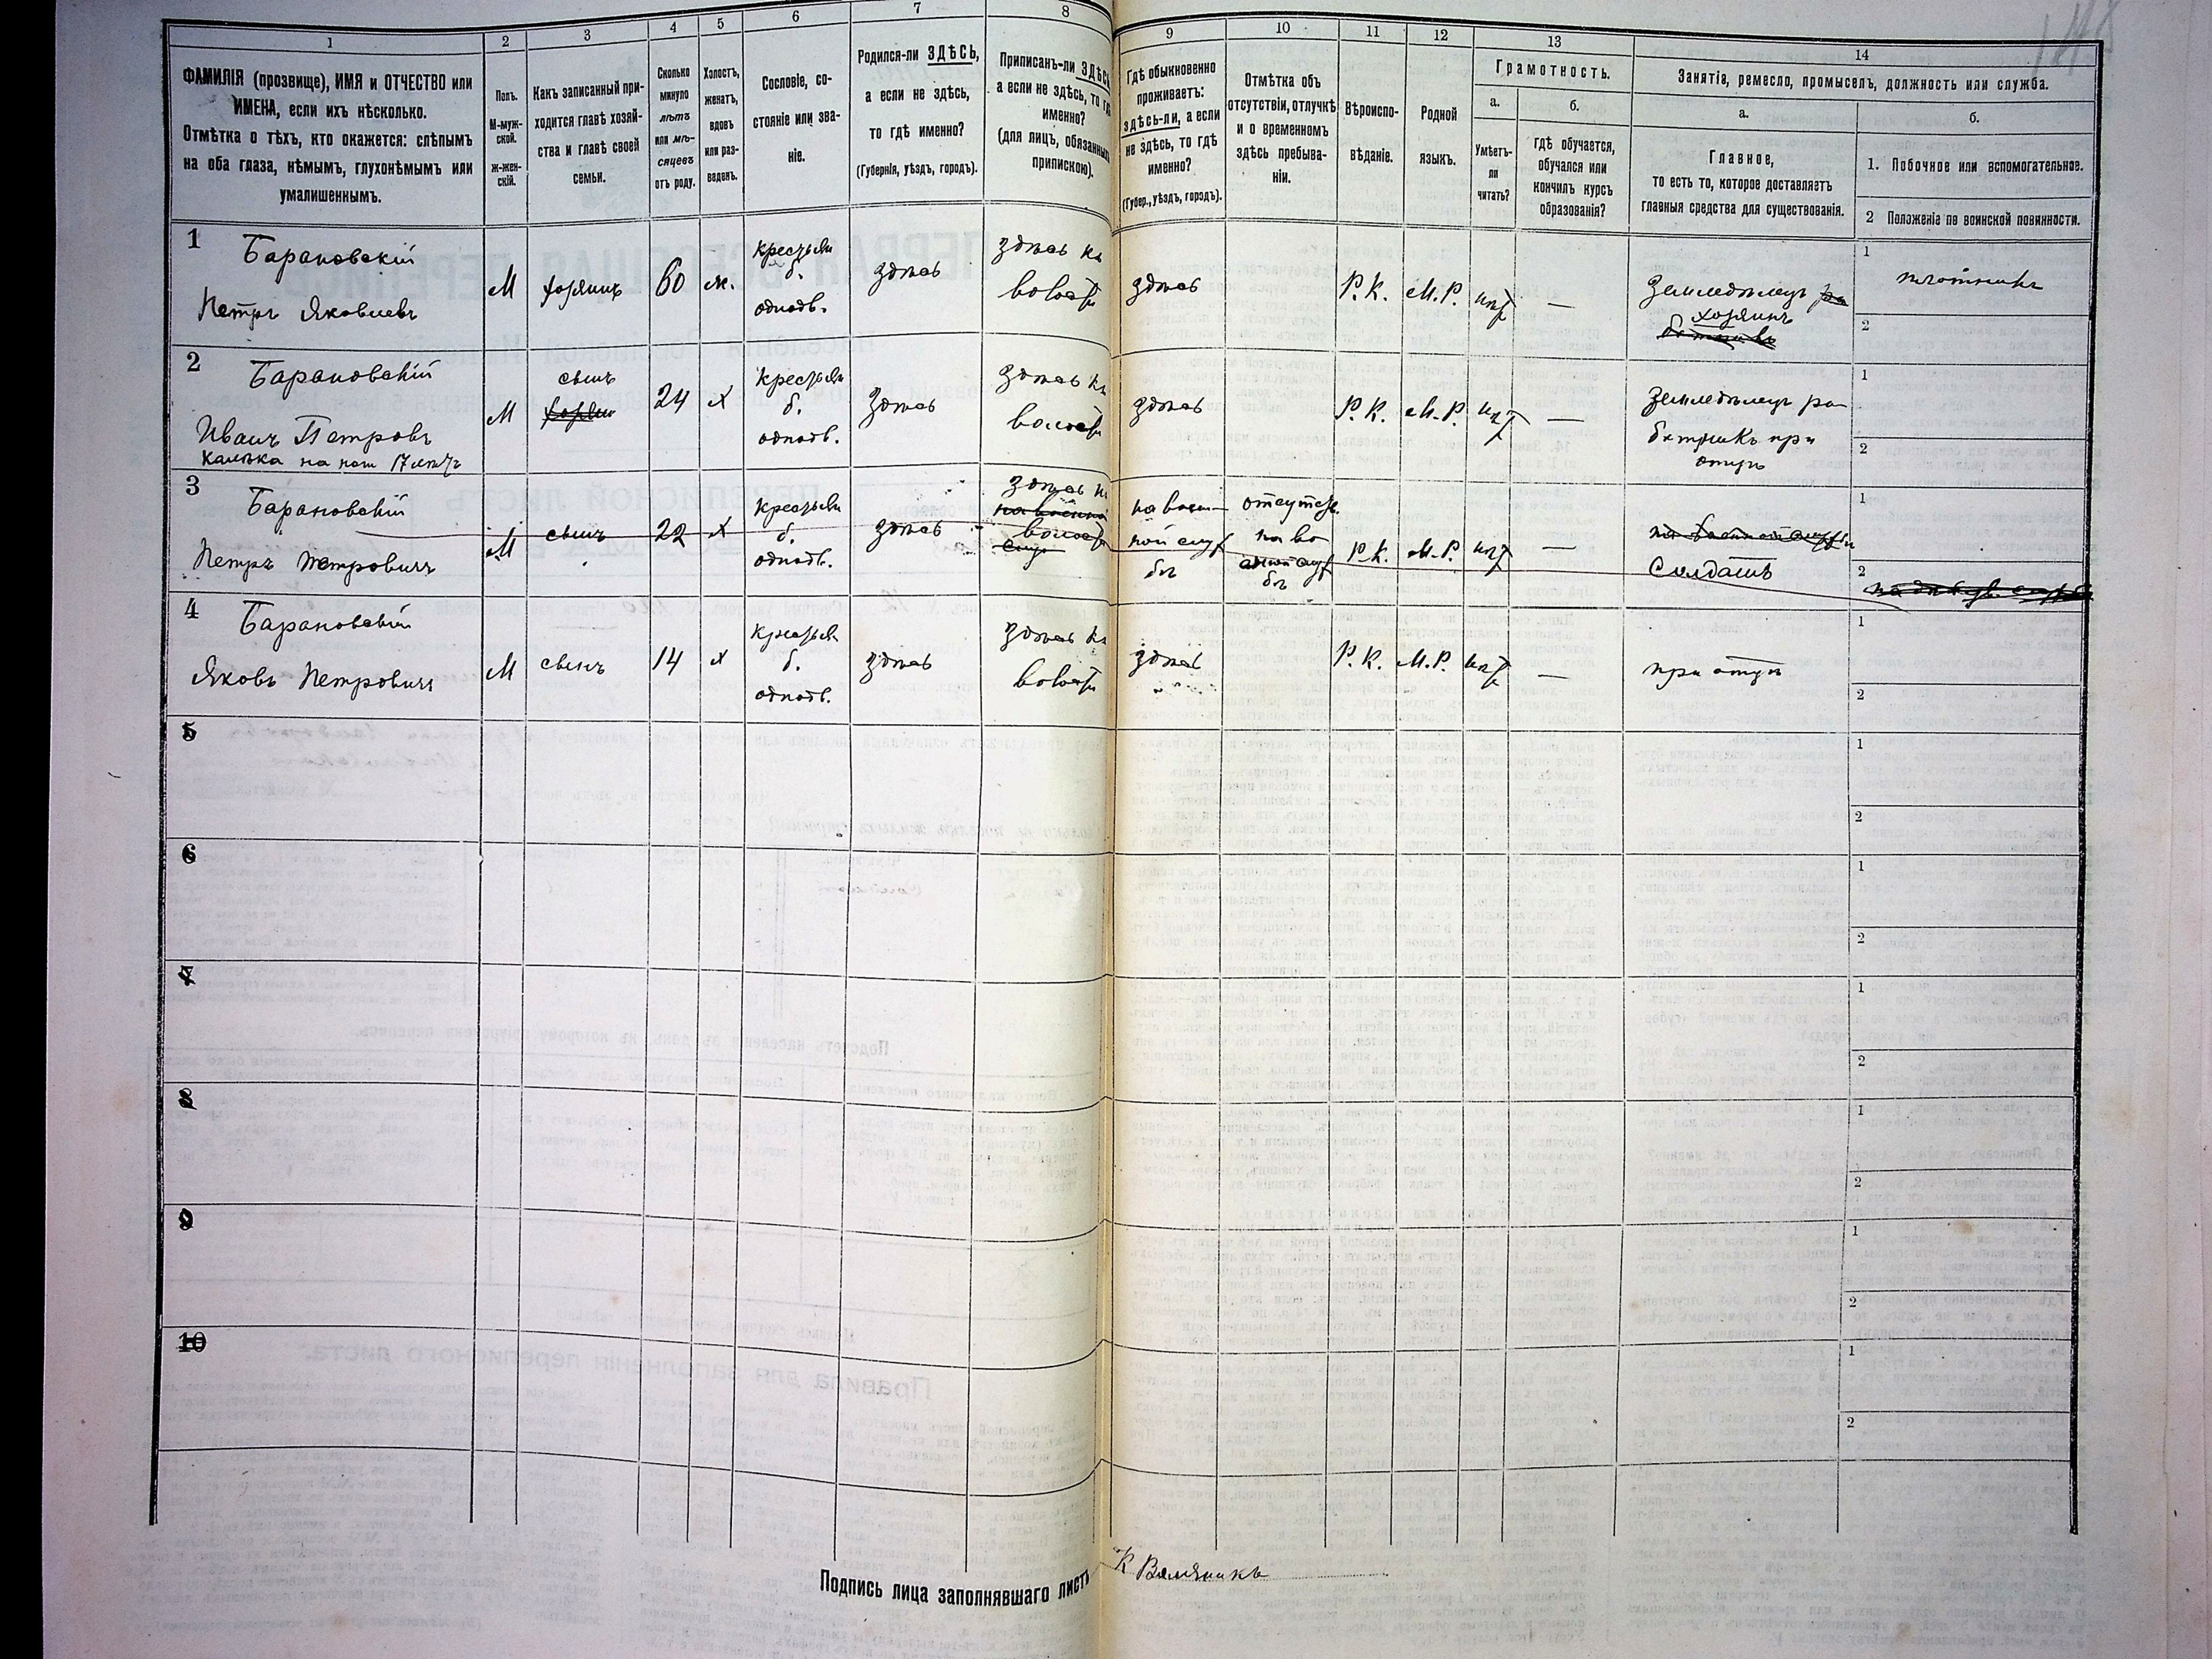 148
1
2
3
4
5
6
7
8
9
10
11
12
13
14
ФАМИЛІЯ (прозвище), ИМЯ и ОТЧЕСТВО или
ИМЕНА, если ихъ нѣсколько.
Отмѣтка о тѣхъ, кто окажется: слѣпымъ
на оба глаза, нѣмымъ, глухонѣмымъ или
умалишеннымъ.
Полъ.
М-муж-
ской.
ж-жен-
скій.
Какъ записанный при-
ходится главѣ хозяй-
ства и главѣ своей
семьи.
Сколько
минуло
лѣтъ
или мѣ-
сяцевъ
отъ роду.
Холостъ,
женатъ,
вдовъ
или раз-
веденъ.
Сословіе, со-
стояніе или зва-
ніе.
Родился-ли ЗДѢСЬ,
а если не здѣсь,
то гдѣ именно?
(Губернія, уѣздъ, городъ).
Приписанъ-ли ЗДѢСЬ,
а если не здѣсь, то гдѣ
именно?
(для лицъ, обязанныхъ
припискою).
Гдѣ обыкновенно
проживаетъ:
здѣсь-ли, а если
не здѣсь, то гдѣ
именно?
(Губер., уѣздъ, городъ).
Отмѣтка объ
отсутствіи, отлучкѣ
и о временномъ
здѣсь пребыва-
ніи.
Вѣроиспо-
вѣданіе.
Родной
языкъ.
Грамотность.
а.
б.
Умѣетъ-
ли
читать?
гдѣ обучается,
обучался или
кончилъ курсъ
образованія?
Занятіе, ремесло, промыселъ, должность или служба.
а.
б.
Главное,
то есть то, которое доставляетъ
главныя средства для существованія.
1. Побочное или вспомогательное.
2 Положеніе по воинской повинности.
1
Барановскій
Петръ Яковлевъ
М
хозяинъ
60
ж.
крестьян
б.
однодв.
здѣсь
здѣсь къ
волости
здѣсь
Р. К.
М. Р.
нѣт
—
Земледѣлецъ
хозяинъ
1
плотникъ
2
2
Барановскій
Иванъ Петровъ
калѣка на ноги 17 лѣтъ
М
сынъ
24
х
крестьян
б.
однодв.
здѣсь
здѣсь къ
волости
здѣсь
Р. К.
М. Р.
нѣт
—
Земледѣлецъ ра
ботникъ при
отцѣ
1
2
3
Барановскій
Петръ Петровичъ
М
сынъ
22
х
крестьян
б.
однодв.
здѣсь
здѣсь къ
волости
на воен-
ной служ
бѣ
отсутств.
на во
енной служ
бѣ
Р. К.
М. Р.
нѣт
—
Солдатъ
1
2
4
Барановскій
Яковъ Петровичъ
М
сынъ
14
х
крестьян
б.
однодв.
здѣсь
здѣсь къ
волости
здѣсь
Р. К.
М. Р.
нѣт
—
при отцѣ
1
2
5
1
2
6
1
2
7
1
2
8
1
2
9
1
2
10
1
2
Подпись лица заполнявшаго листъ